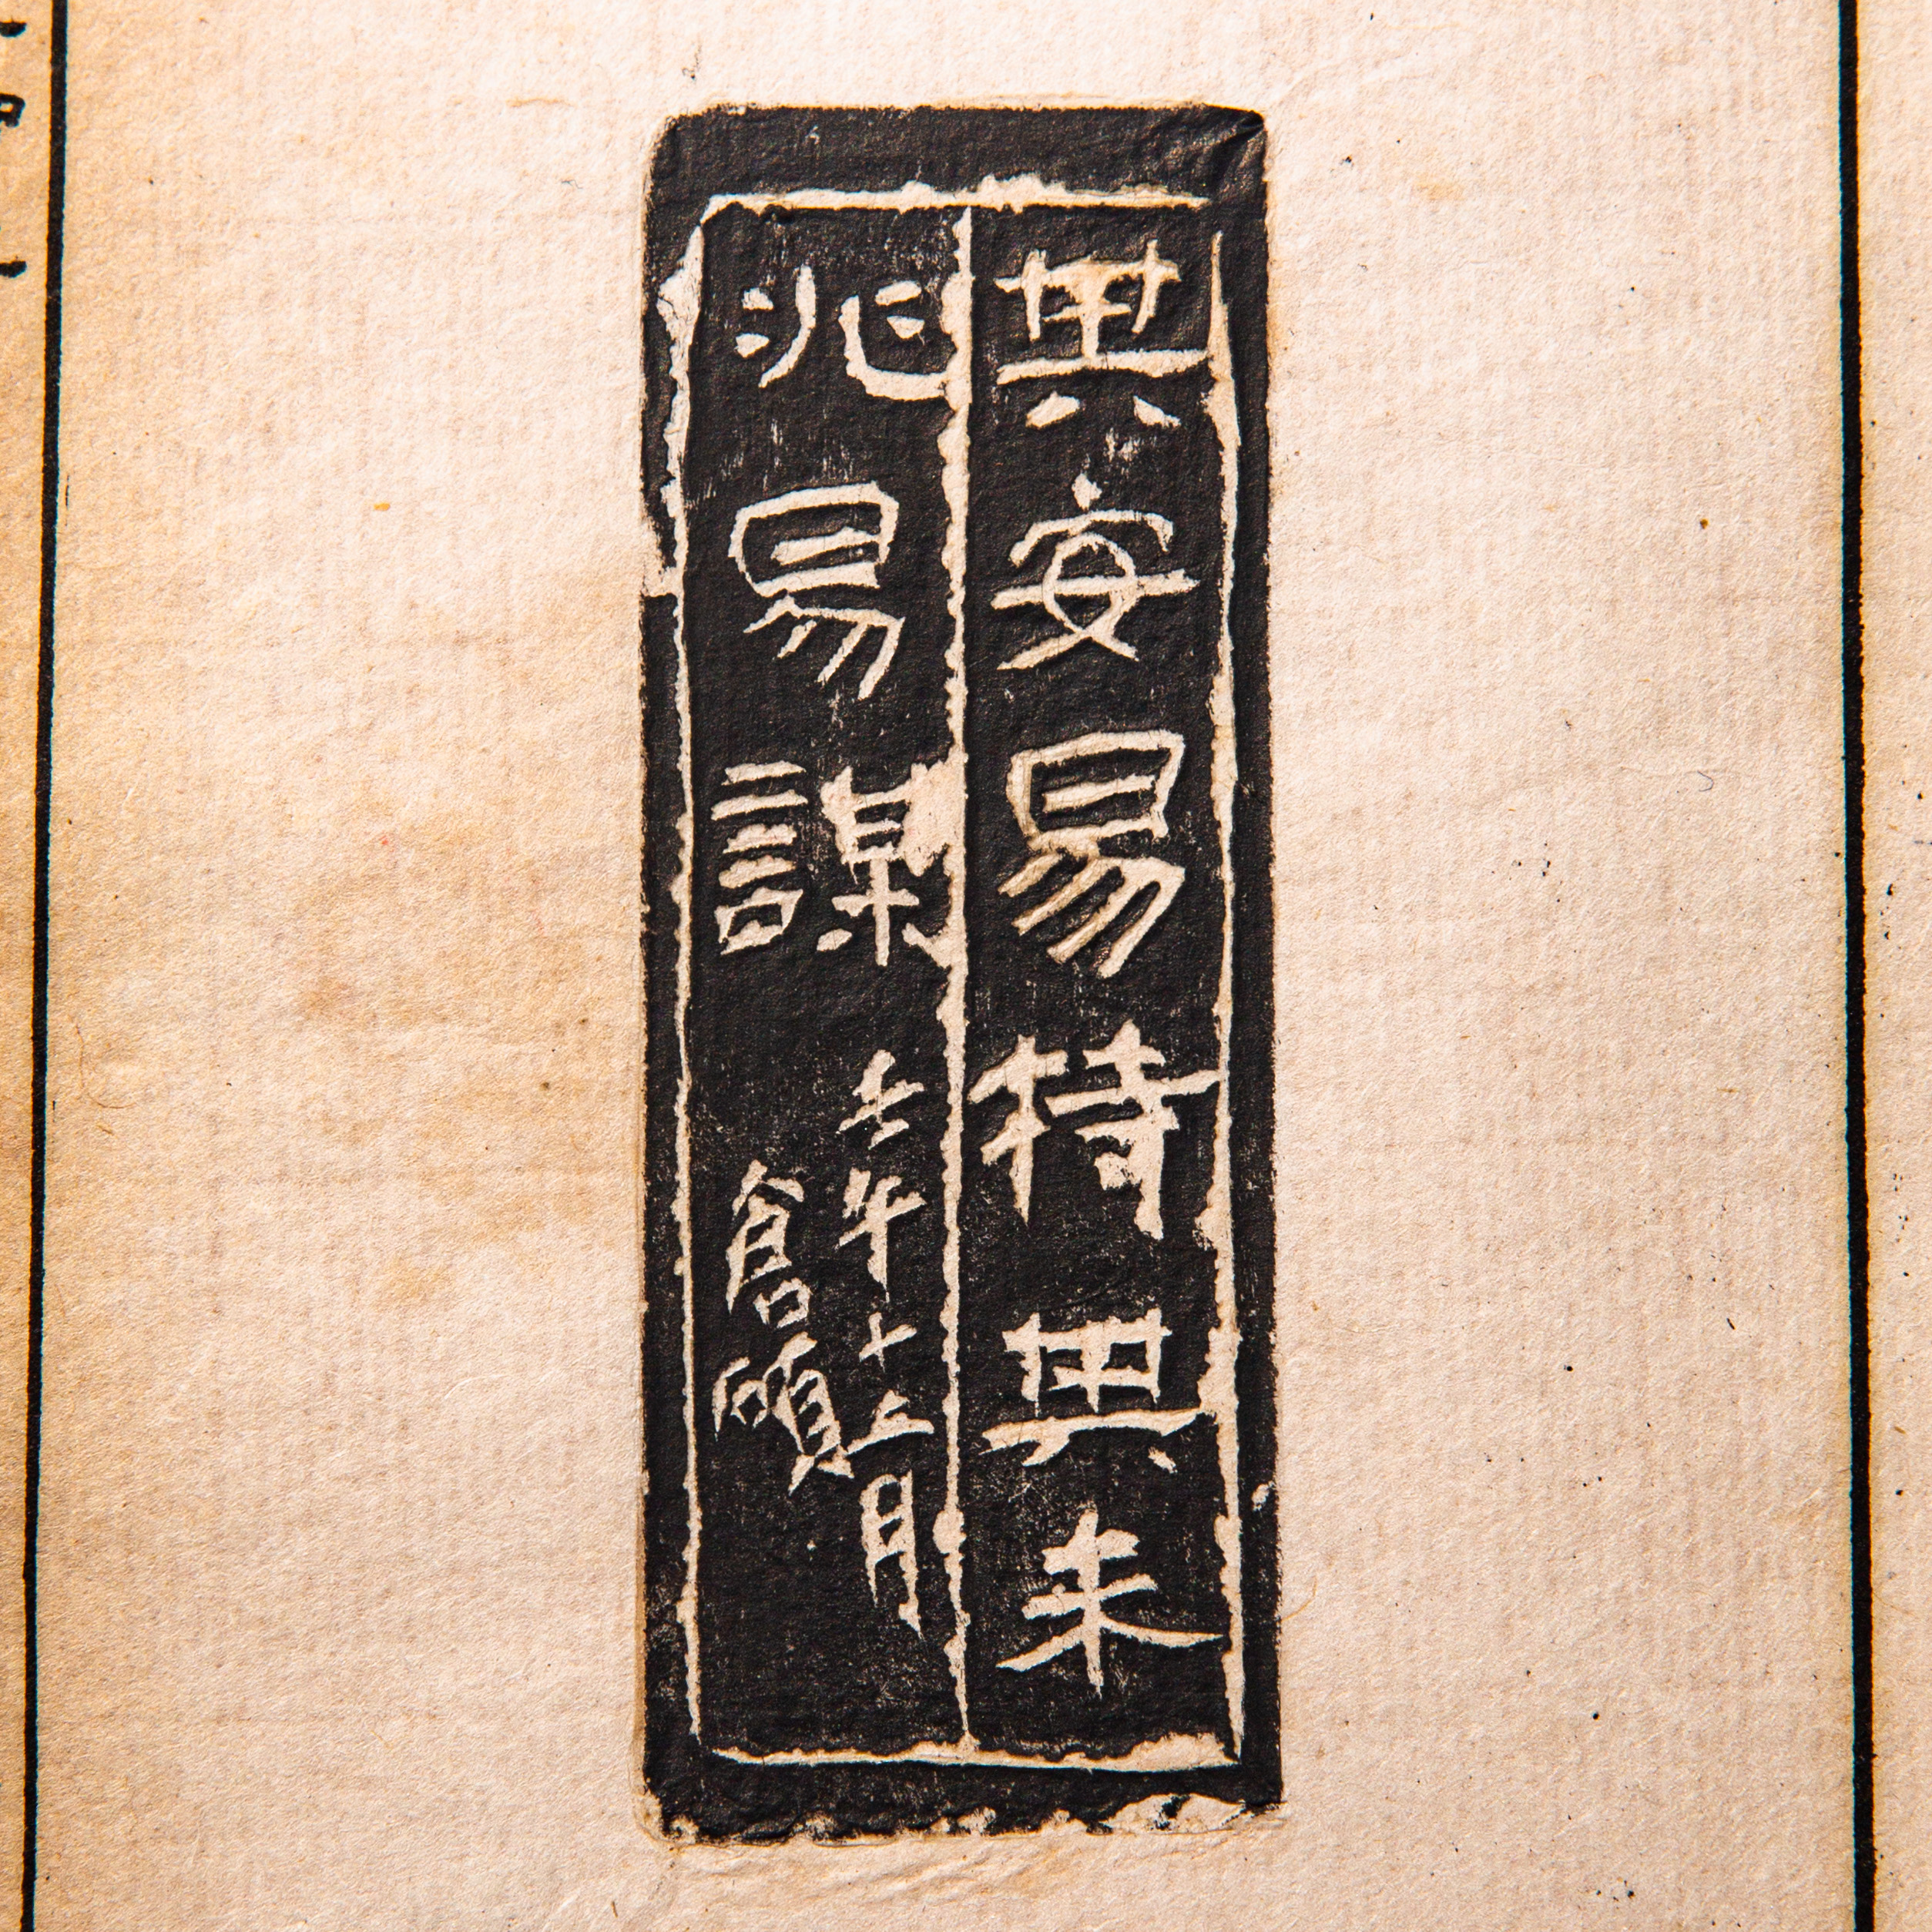 其安易持其未
兆易謀
壬午十二月
倉碩